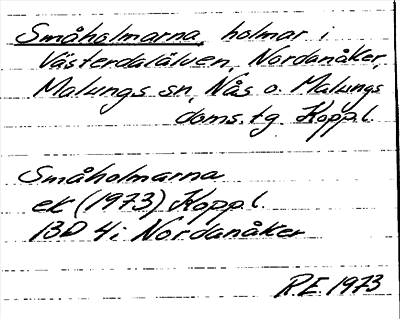 Småholmarna, holmar i
Västerdalälven, Nordanåker,
Malungs sn, Nås o. Malungs
doms. tg Koppl.
Småholmarna
ek (1973) Koppl.
13D 4i Nordanåker
R.E. 1973